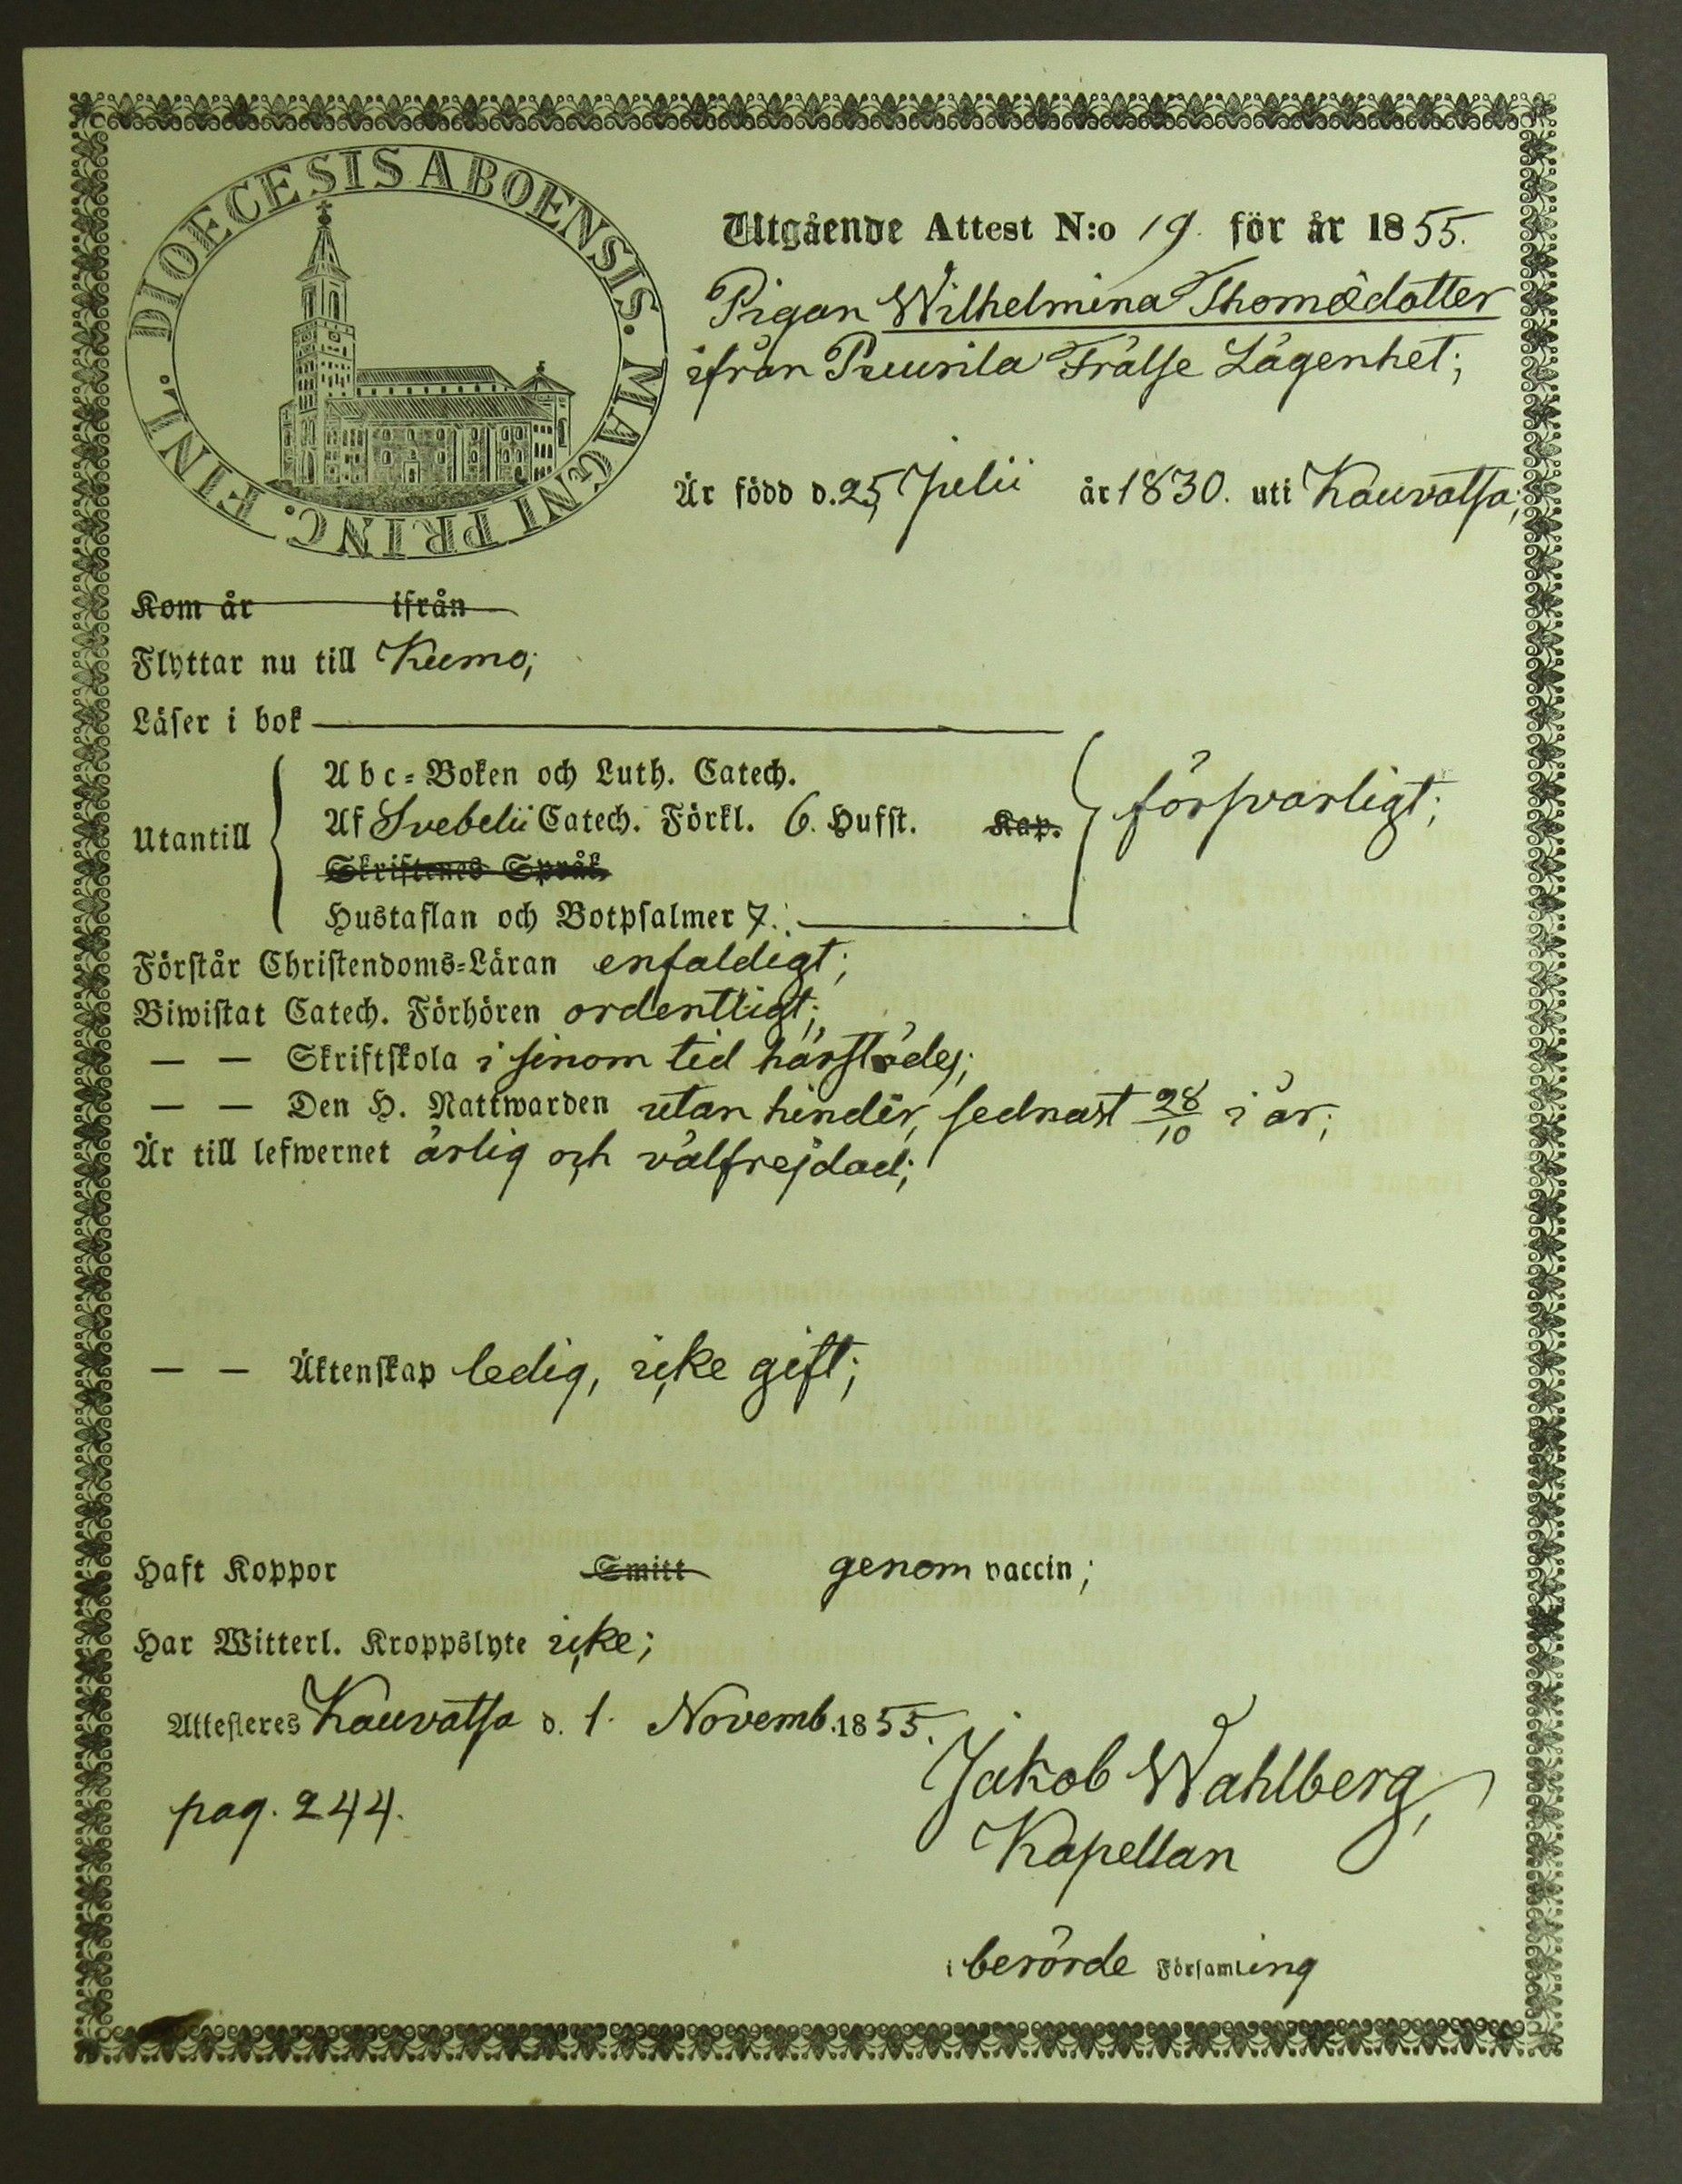 DIOECESIS ABOENSIS. MAGNI PRINC. FINL.
Utgående Attest N:o 19. för år 1855.
Pigan Wilhelmina Thomædotter
ifrån Puurila Frälse Lägenhet;
Är född d. 25 Julii år 1830. uti Kauvatsa;
Kom år ifrån
Flyttar nu till Kumo;
Läser i bok
Utantill
Abc-Boken och Luth. Catech.
Af Svebelii Catech. Förkl. 6. Hufst. Kap.
Skriftenes Språk
Hustaflan och Botpsalmer 7.
försvarligt;
Förstår Christendoms-Läran enfaldigt;
Biwistat Catech. Förhören ordentligt;
— — Skriftskola i sinom tid härstädes;
— — Den H. Nattwarden utan hinder, sednast 28/10 i år;
Är till lefwernet ärlig och välfrejdad;
— — Äktenskap ledig, icke gift;
Haft Koppor Smitt genom vaccin;
Har Witterl. Kroppslyte icke;
Attesteres Kauvatsa d. 1. Novemb. 1855.
Jakob Wahlberg,
pag. 244.
Kapellan
i berörde Församling